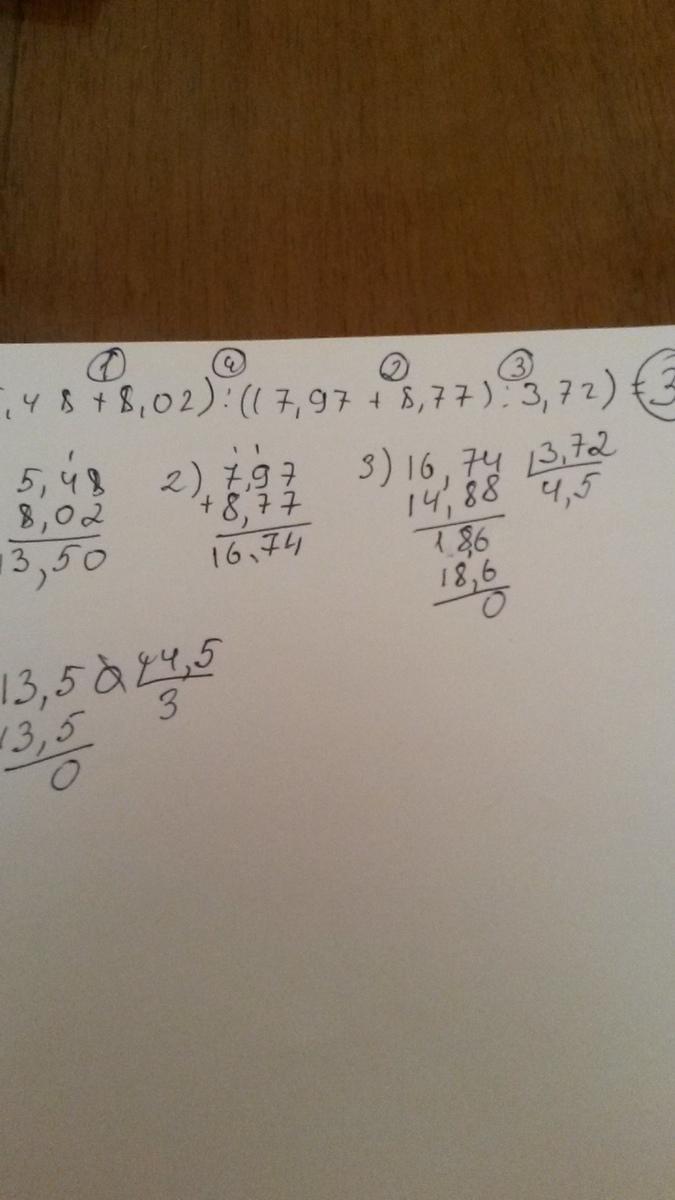 ① ④ ② ③
,48 + 8,02) : ((7,97 + 8,77) : 3,72) = 3
5,48
8,02
13,50
2) 7,97
+ 8,77
16,74
3) 16,74 3,72
14,88 4,5
1 86
18,6
0
13,5 4,5
13,5 3
0